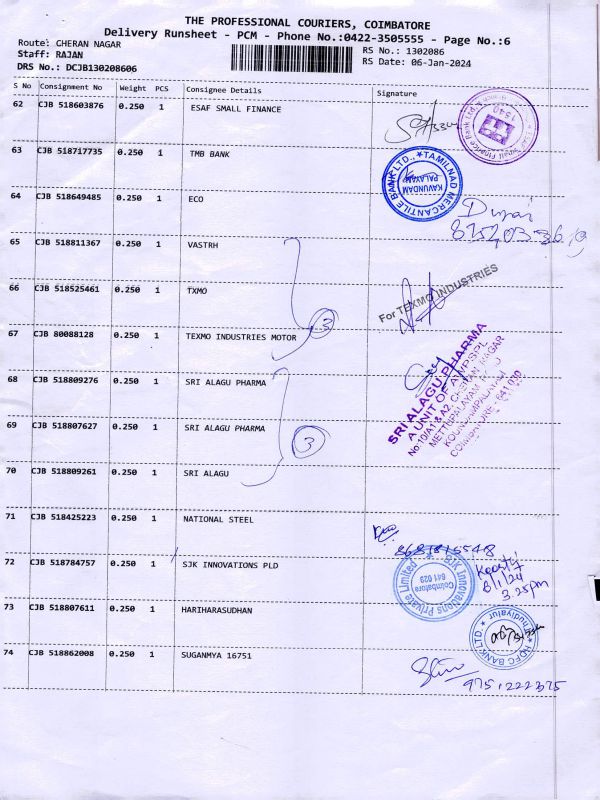 THE PROFESSIONAL COURIERS, COIMBATORE
Delivery Runsheet - PCM - Phone No.:0422-3505555 - Page No.:6
Route: CHERAN NAGAR
Staff: RAJAN
DRS No.: DCJB130208606
RS No.: 1302086
RS Date: 06-Jan-2024
S No Consignment No Weight PCS Consignee Details Signature
62 CJB 518603876 0.250 1 ESAF SMALL FINANCE
1540
63 CJB 518717735 0.250 1 TMB BANK
TAMILNAD MERCANTILE BANK LTD.,
KAVUNDAM PALAYAM
64 CJB 518649485 0.250 1 ECO
65 CJB 518811367 0.250 1 VASTRH
66 CJB 518525461 0.250 1 TXMO
3
For TEXMO INDUSTRIES
67 CJB 80088128 0.250 1 TEXMO INDUSTRIES MOTOR
68 CJB 518809276 0.250 1 SRI ALAGU PHARMA
SRI ALAGU PHARMA
A UNIT OF ATWPSPL
No:10/A1 & A2, CHERAN NAGAR
COIMBATORE - 641 030
69 CJB 518807627 0.250 1 SRI ALAGU PHARMA
3
70 CJB 518809261 0.250 1 SRI ALAGU
71 CJB 518425223 0.250 1 NATIONAL STEEL
72 CJB 518784757 0.250 1 SJK INNOVATIONS PLD
SJK Innovations Private Limited
Coimbatore
641 029
6/1/24
3.25pm
73 CJB 518807611 0.250 1 HARIHARASUDHAN
HDFC BANK LTD
74 CJB 518862008 0.250 1 SUGANMYA 16751